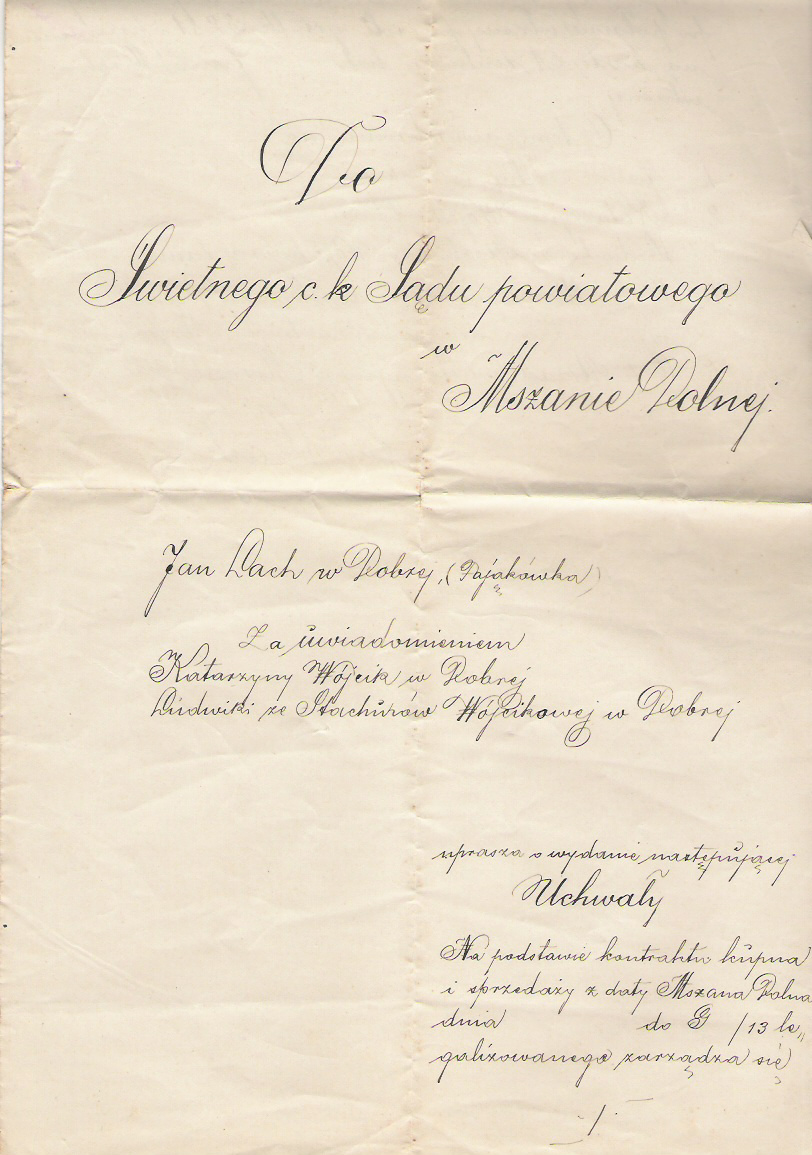 Do
Świetnego c. k Sądu powiatowego
w
Mszanie Dolnej.
Jan Dach w Dobrej, (Pająkówka)
Za uwiadomieniem
Katarzyny Wójcik w Dobrej
Ludwiki ze Stachurów Wójcikowej w Dobrej
uprasza o wydanie następującej
Uchwały
Na podstawie kontraktu kupna
i sprzedaży z daty Mszana Dolna
dnia do G /13 le„
galizowanego zarządza się
./.